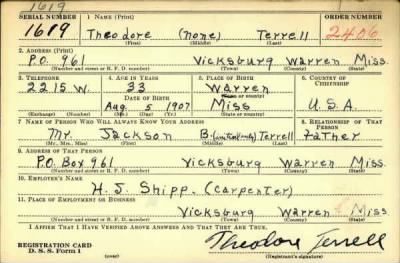 1619
SERIAL NUMBER 1. NAME (Print) ORDER NUMBER
1619 Theodore (none) Terrell 2406
(First) (Middle) (Last)
2. ADDRESS (Print)
P.O. 961 Vicksburg Warren Miss.
(Number and street or R. F. D. number) (Town) (County) (State)
3. TELEPHONE 4. AGE IN YEARS 5. PLACE OF BIRTH 6. COUNTRY OF CITIZENSHIP
2215 W. 33 Warren
DATE OF BIRTH (Town or county)
Aug 5 1907 Miss U.S.A.
(Exchange) (Number) (Mo.) (Day) (Yr.) (State or country)
7. NAME OF PERSON WHO WILL ALWAYS KNOW YOUR ADDRESS 8. RELATIONSHIP OF THAT PERSON
Mr. Jackson B. (initial only) Terrell Father
(Mr., Mrs., Miss) (First) (Middle) (Last)
9. ADDRESS OF THAT PERSON
P.O. Box 961 Vicksburg Warren Miss.
(Number and street or R. F. D. number) (Town) (County) (State)
10. EMPLOYER'S NAME
H. J. Shipp. (Carpenter)
11. PLACE OF EMPLOYMENT OR BUSINESS
Vicksburg Warren Miss
(Number and street or R. F. D. number) (Town) (County) (State)
I AFFIRM THAT I HAVE VERIFIED ABOVE ANSWERS AND THAT THEY ARE TRUE.
REGISTRATION CARD
D. S. S. Form 1 (over) Theodore Terrell
(Registrant's signature)